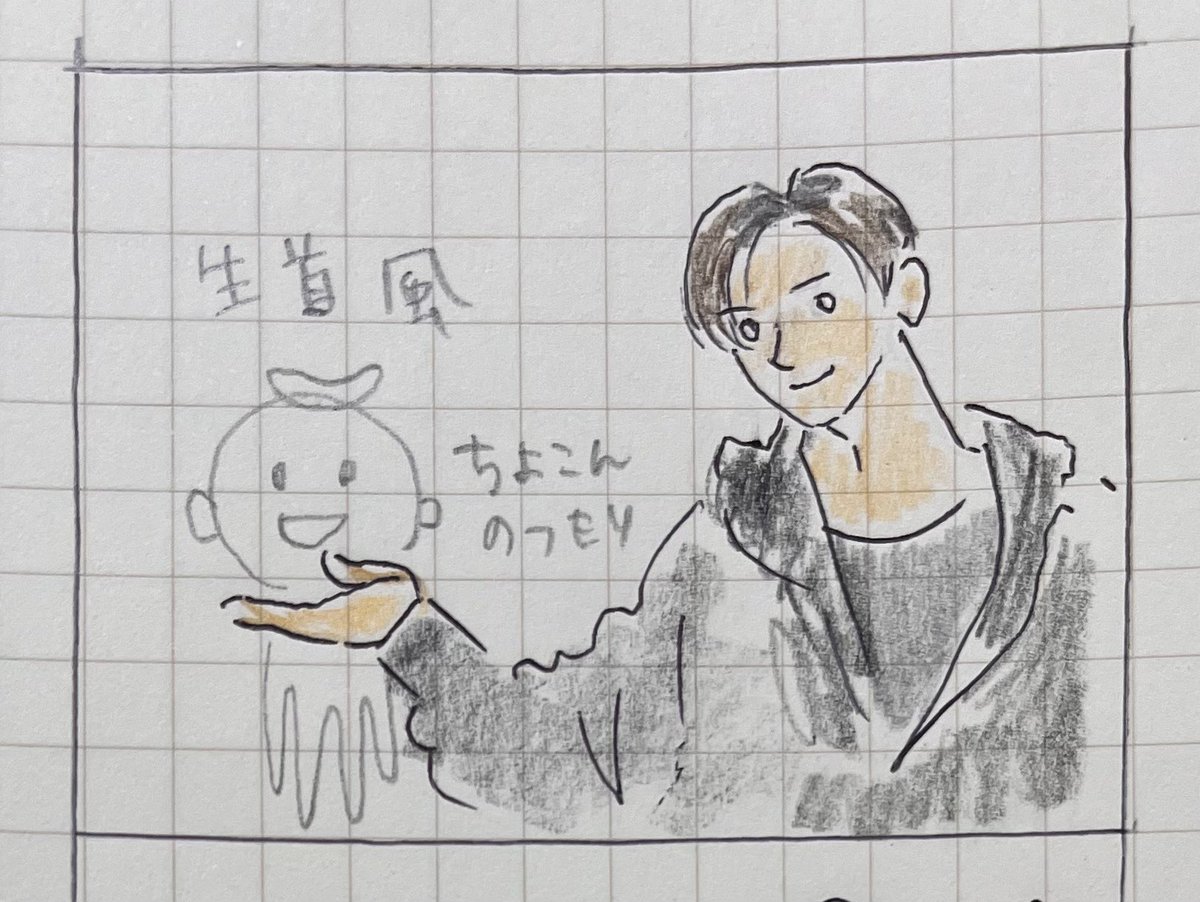 生首風
ちよこん
のつもり